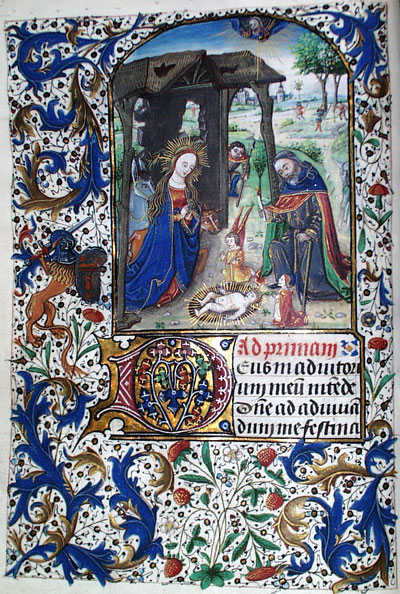 Ad primam
Deus in adiutor
ium meū intēde
Dn̄e ad adiuuā
dum me festina